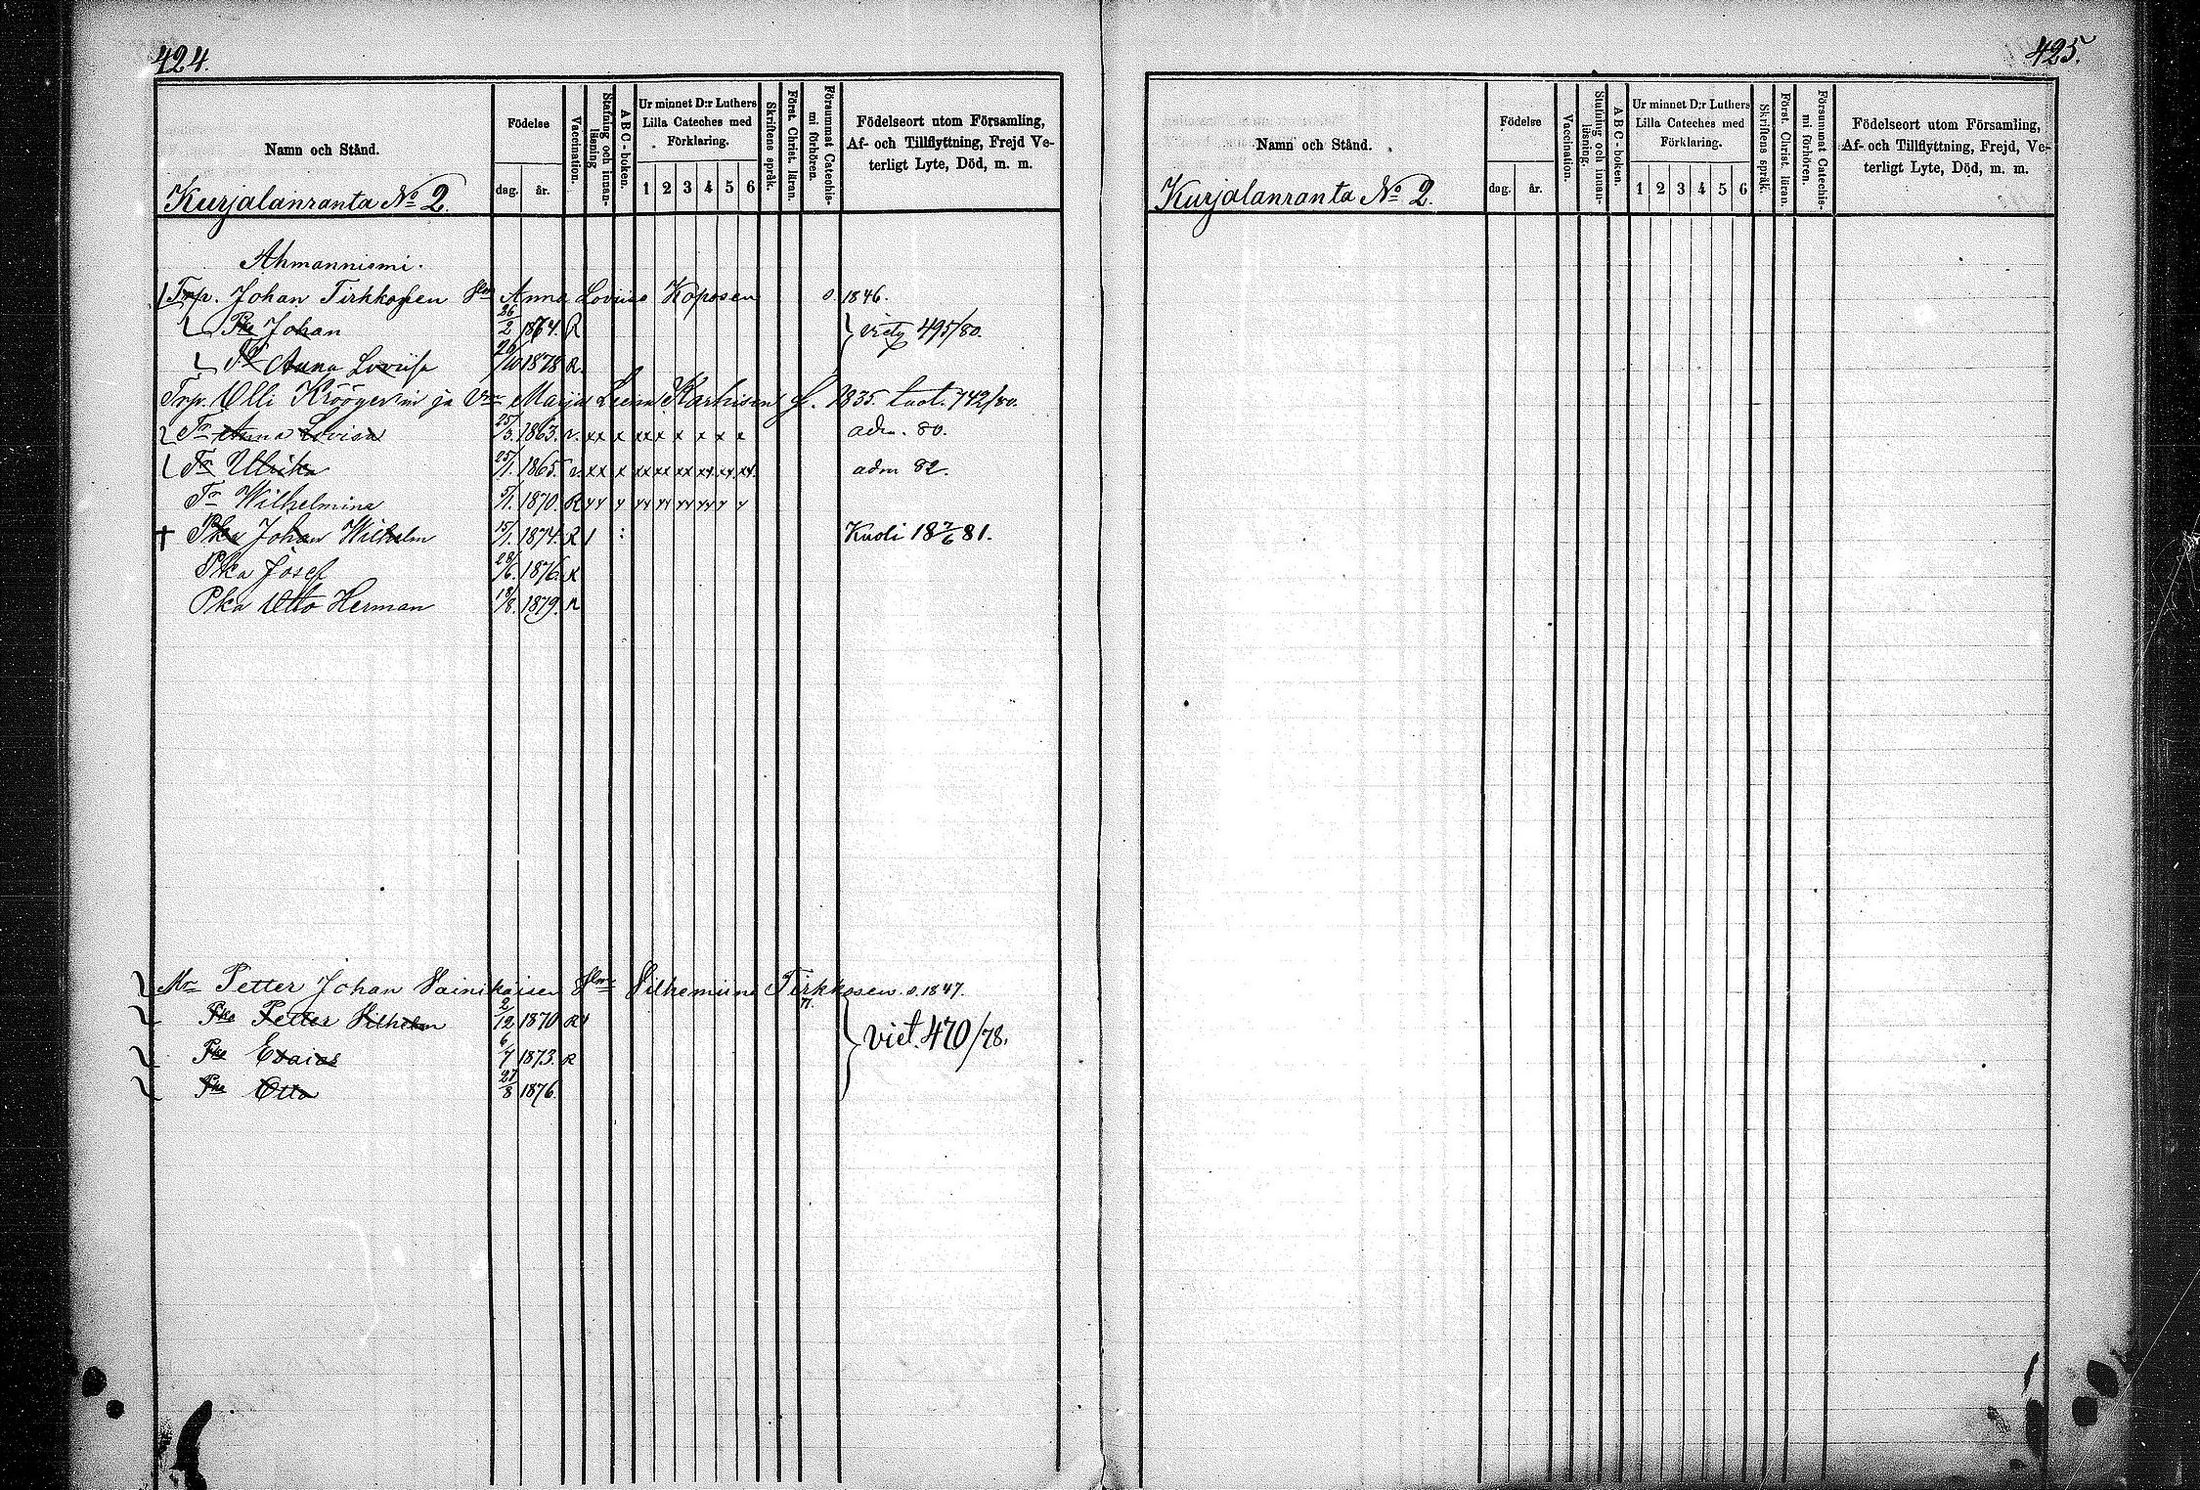 424.
Namn och Stånd.
Födelse
dag. år.
Vaccination.
Stafning och innan-läsning
ABC-boken.
Ur minnet D:r Luthers
Lilla Cateches med
Förklaring.
1 2 3 4 5 6
Skriftens språk.
Först. Christ. läran.
Försummat Catechis-mi förhören.
Födelseort utom Församling,
Af- och Tillflyttning, Frejd Ve-
terligt Lyte, Död, m. m.
Kurjalanranta No 2.
Ahmanniemi.
Trp. Johan Tirkkonen Anna Loviisa Koposen s. 1846.
Pka Johan 26/2 1864. R
495/80.
Tr Anna Loviisa 26/10 1878 R.
Trp. Olli Kröögerin ja Vmo Maija Leena Karhisen f. 1835 tuot. 742/80.
Tr Anna Lovisa 25/3. 1863. v. xx x xx x x x x x adm. 80.
Tr Ullrika 25/1. 1865. v. xx x xx xx xx xx xx xx adm 82.
Tr Wilhelmina 5/1. 1870. R
Pka Johan Wilhelm 15/1. 1874. R Kuoli 18 7/6 81.
Pka Josef 28/6. 1876. R
Pka Otto Herman 18/8. 1879. R
Petter Johan Vainikaisen Vilhemiina Tirkkosen s. 1847.
Pka Petter Vilhelm 2/12 1870 R
viet. 470/78.
Pka Esaias 6/7 1873. R
Pka Otto 27/8 1876.
425.
Namn och Stånd.
Födelse
dag. år.
Vaccination.
Stafning och innan-läsning.
ABC-boken.
Ur minnet D:r Luthers
Lilla Cateches med
Förklaring.
1 2 3 4 5 6
Skriftens språk.
Först. Christ. läran.
Försummat Catechis-mi förhören.
Födelseort utom Församling,
Af- och Tillflyttning, Frejd, Ve-
terligt Lyte, Död, m. m.
Kurjalanranta No 2.